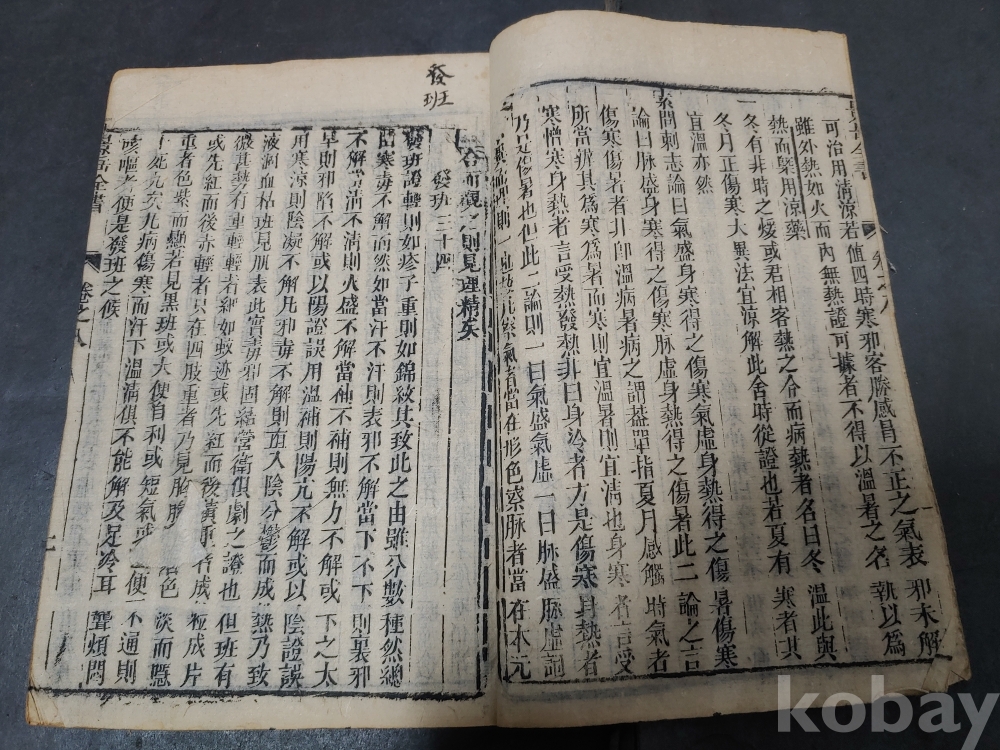 可治用清涼若值四時寒邪客勝感冒不正之氣表邪未解
雖外熱如火而內無熱證可據者不得以溫暑之名執以爲
熱而槩用涼藥
一冬有非時之煖或君相客熱之令而病熱者名曰冬溫此與
冬月正傷寒大異法宜涼解此舍時從證也若夏有寒者其
宜溫亦然
素問刺志論曰氣盛身寒得之傷寒氣虛身熱得之傷暑傷寒
論曰脉盛身寒得之傷寒脉虛身熱得之傷暑此二論之言
傷寒傷暑者非即溫病暑病之謂蓋單指夏月感觸時氣者
所當辨其爲寒爲暑而寒則宜溫暑則宜清也身寒者言受
寒憎寒身熱者言受熱發熱非曰身冷者方是傷寒身熱者
乃是傷暑也但此二論則一曰氣盛氣虛一曰脉盛脉虛詞
則一察氣者當在形色察脉者當在本元
發班
合而觀之則見理精矣
發班三十四
發班證輕則如疹子重則如錦紋其致此之由雖分數種然總
由寒毒不解而然如當汗不汗則表邪不解當下不下則裏邪
不解當清不清則火盛不解當補不補則無力不解或下之太
早則邪陷不解或以陽證誤用溫補則陽亢不解或以陰證誤
用寒涼則陰凝不解凡邪毒不解則直入陰分鬱而成熱乃致
液涸血枯班見肌表此實毒邪固結營衛俱劇之證也但班有
微甚勢有重輕輕者細如蚊迹或先紅而後黃重者成粒成片
或先紅而後赤輕者只在四肢重者乃見胸腹輕者色淡而隱
重者色紫而顯若見黑班或大便自利或短氣或二便不通則
十死九矣凡病傷寒而汗下溫清俱不能解及足冷耳聾煩悶
咳嘔者便是發班之候
景岳全書
卷之八
kobay